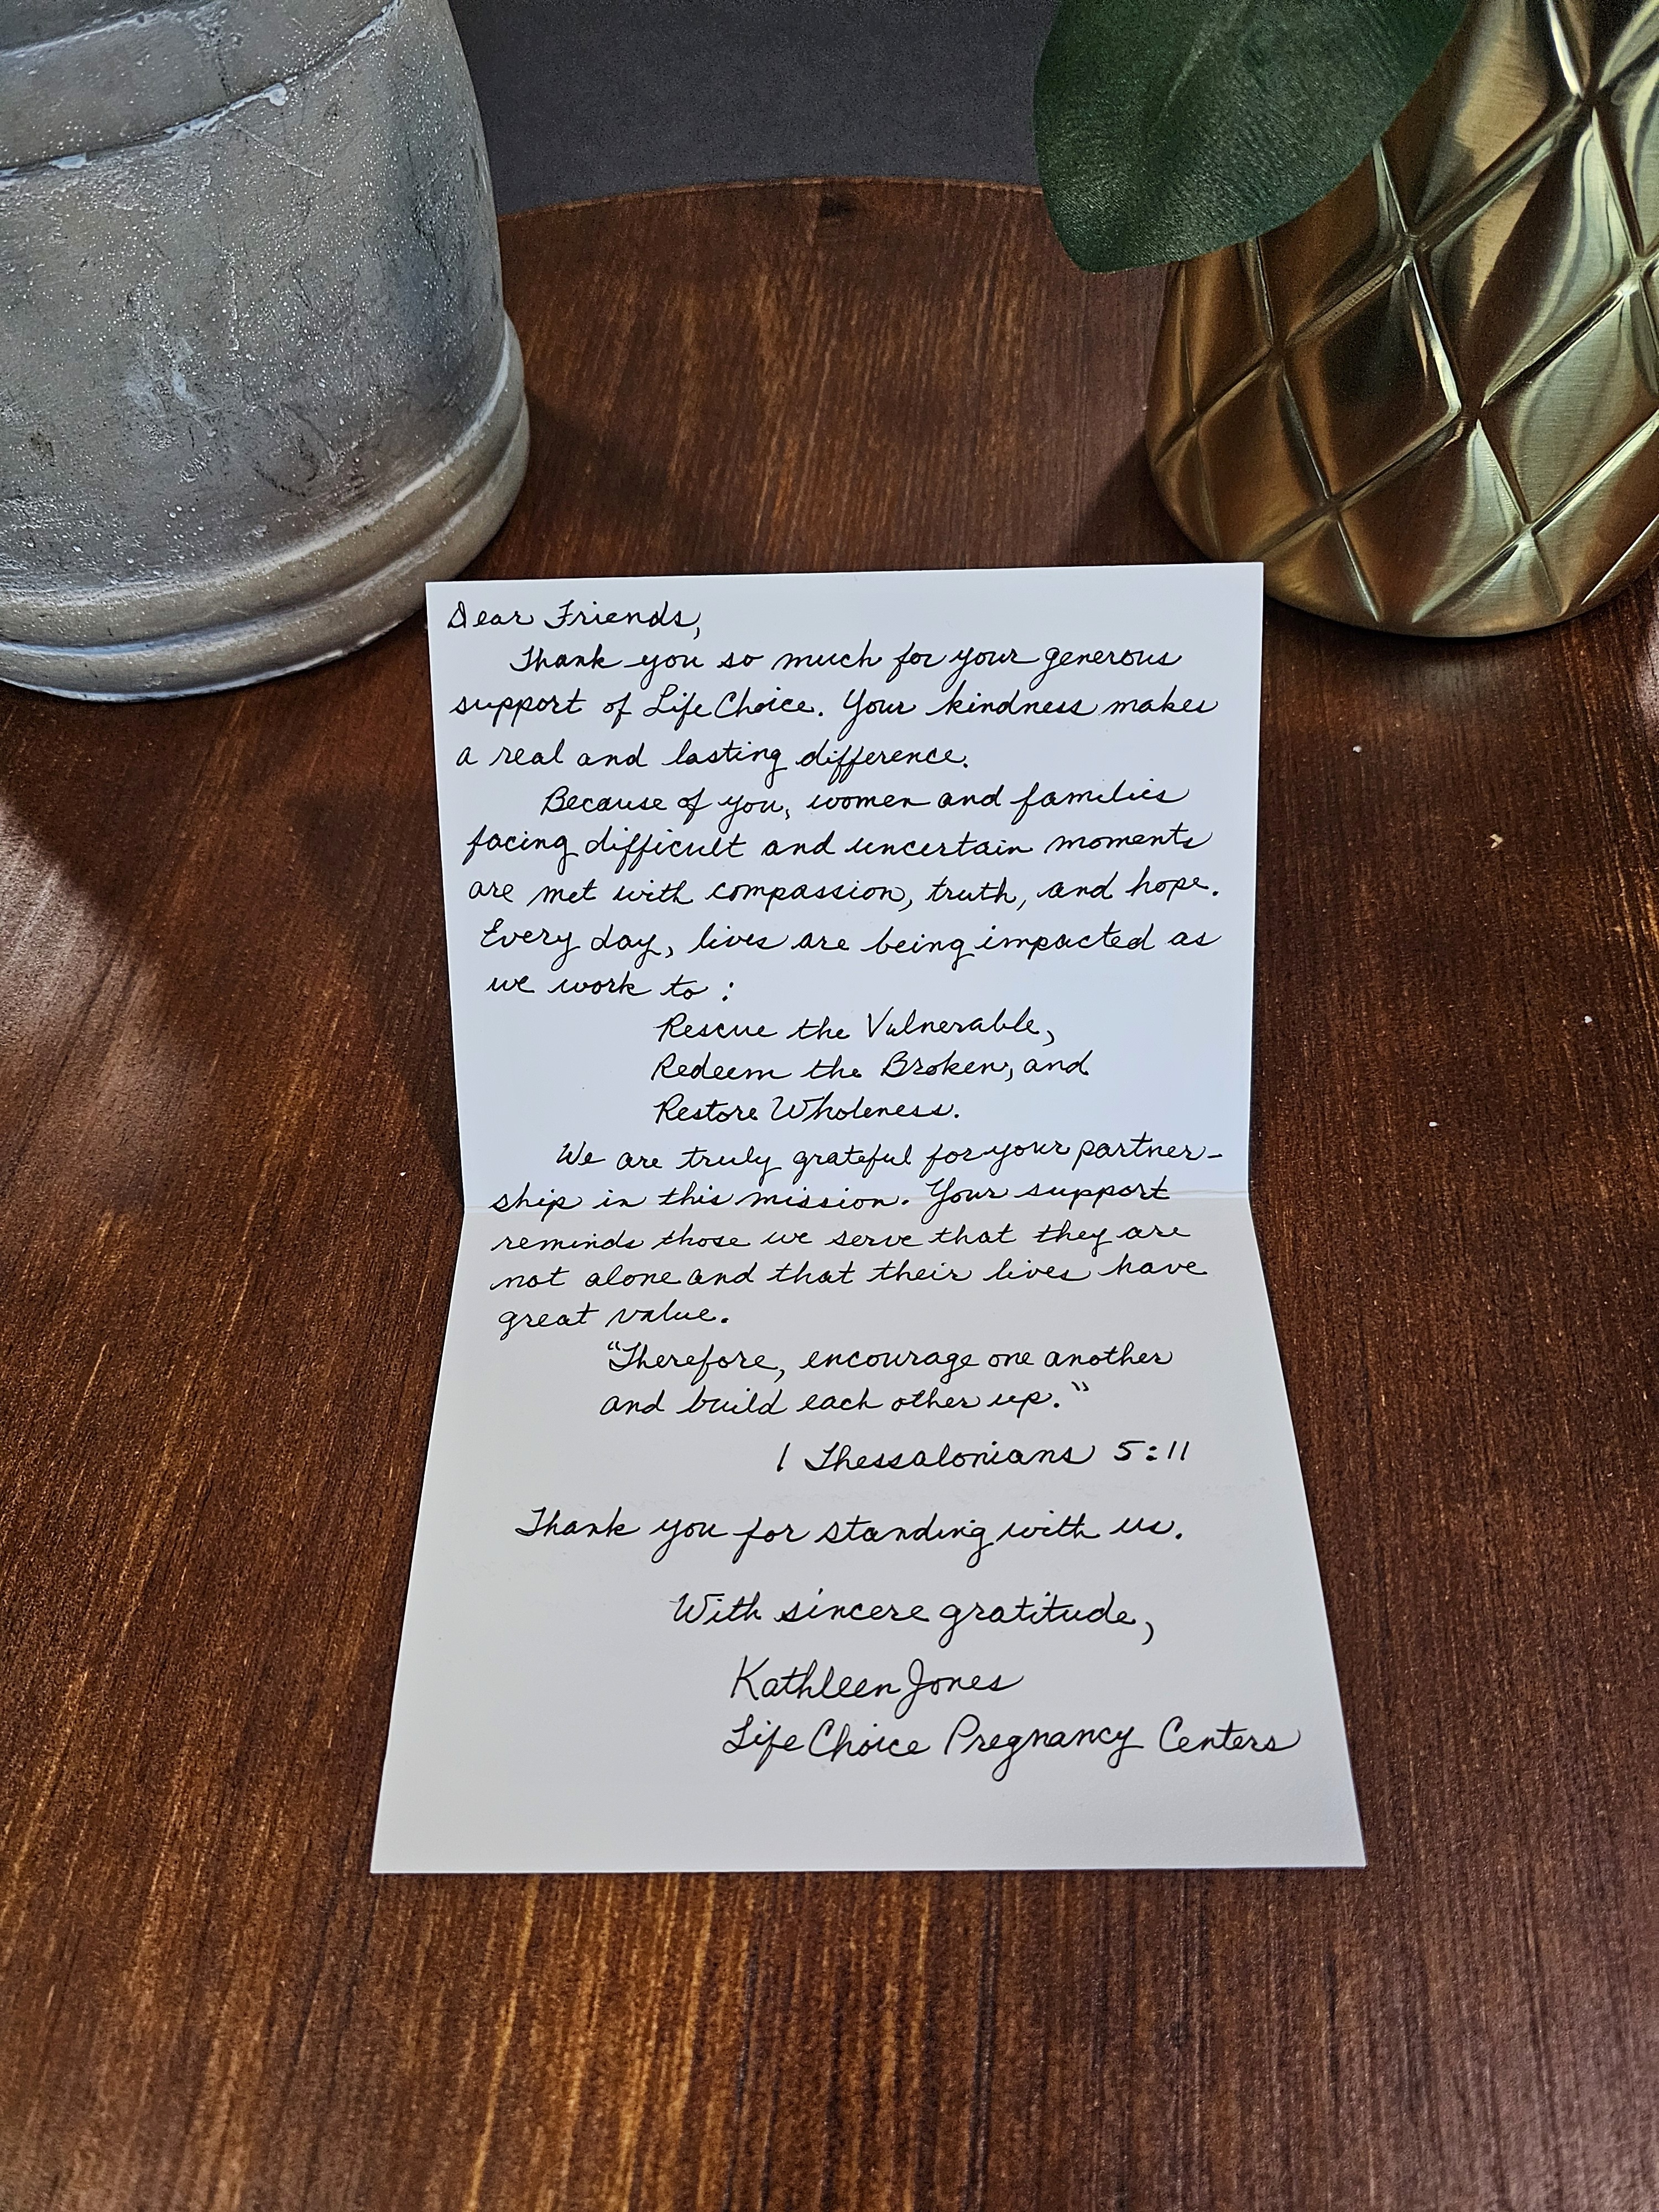 Dear Friends,
Thank you so much for your generous
support of LifeChoice. Your kindness makes
a real and lasting difference.
Because of you, women and families
facing difficult and uncertain moments
are met with compassion, truth, and hope.
Every day, lives are being impacted as
we work to:
Rescue the Vulnerable,
Redeem the Broken, and
Restore Wholeness.
We are truly grateful for your partner-
ship in this mission. Your support
reminds those we serve that they are
not alone and that their lives have
great value.
"Therefore, encourage one another
and build each other up."
1 Thessalonians 5:11
Thank you for standing with us.
With sincere gratitude,
Kathleen Jones
LifeChoice Pregnancy Centers